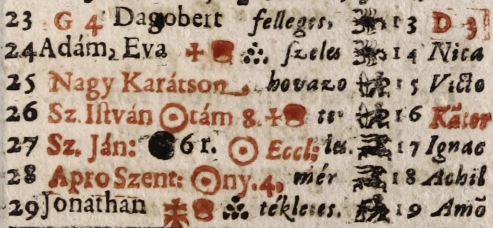 23 G 4 Dagobert felleges, 13 D 3
24 Adám, Eva szeles 14 Nica
25 Nagy Karátson, hovazo 15 Victo
26 Sz. István támd 8. te- 16
27 Sz. Ján: 6 r. Eccl: les. 17 Ignac
28 Apro Szent: ny. 4, mér 18 Achil
29 Jonathan tékletes. 19 Amō